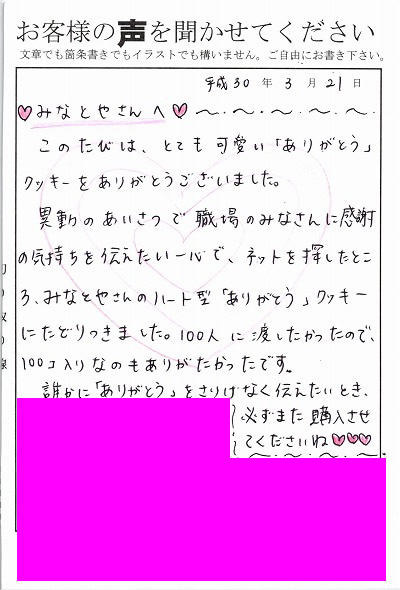 お客様の声を聞かせてください
文章でも箇条書きでもイラストでも構いません。ご自由にお書き下さい。
平成30年3月21日
♡みなとやさんへ♡
このたびは、とても可愛い「ありがとう」
クッキーをありがとうございました。
異動のあいさつで職場のみなさんに感謝
の気持ちを伝えたい一心で、ネットを探したとこ
ろ、みなとやさんのハート型「ありがとう」クッキー
にたどりつきました。100人に渡したかったので、
100コ入りなのもありがたかったです。
誰かに「ありがとう」をさりげなく伝えたいとき、
必ずまた購入させ
てくださいね♡♡♡